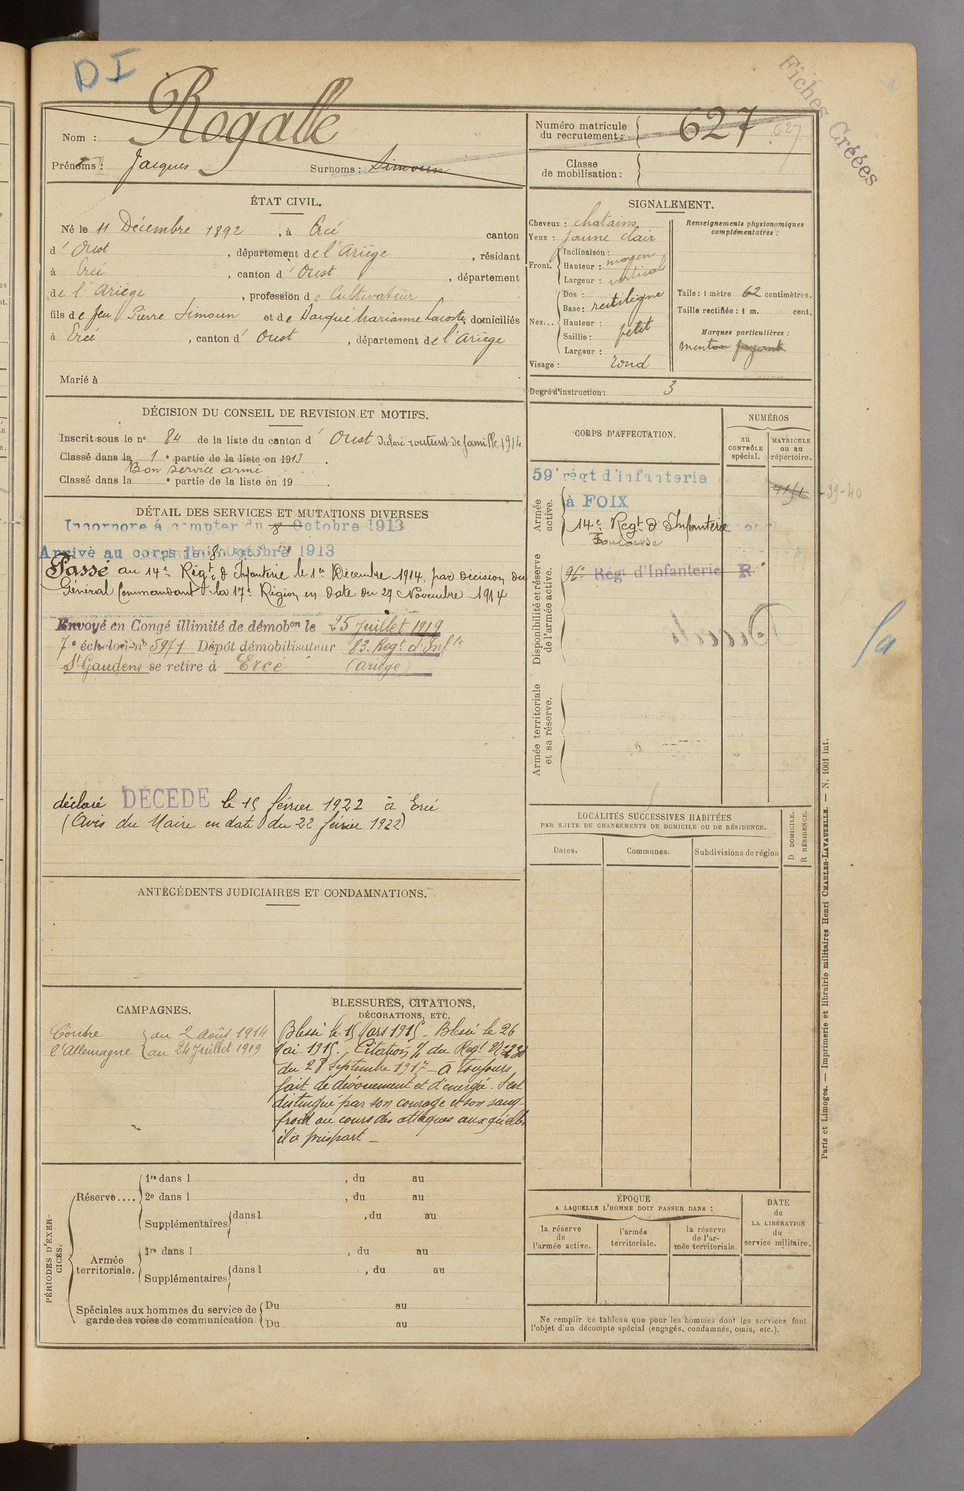 DI
Fiches Créées
Nom : Rogalle
Prénoms : Jacques Surnoms : Simoun
Numéro matricule du recrutement : 627
627
Classe de mobilisation :
ÉTAT CIVIL.
Né le 11 Décembre 1892, à Ercé canton
d'Oust, département de l'Ariège, résidant
à Ercé, canton d'Oust, département
de l'Ariège, profession de Cultivateur
fils de feu Pierre Simoun et de Marianne Lacoste domiciliés
à Ercé, canton d'Oust, département de l'Ariège
Marié à
SIGNALEMENT.
Cheveux : chatains
Yeux : jaune clair
Front. Inclinaison : moyen
Hauteur : vertical
Largeur :
Nez... Dos : rectiligne
Base :
Hauteur : petit
Saillie :
Largeur :
Visage : rond
Renseignements physionomiques complémentaires :
Taille : 1 mètre 62 centimètres.
Taille rectifiée : 1 m. cent.
Marques particulières :
menton fuyant
Degré d'instruction : 3
DÉCISION DU CONSEIL DE REVISION ET MOTIFS.
Inscrit sous le n° 84 de la liste du canton d'Oust soutient de famille 1914
Classé dans la 1e partie de la liste en 1913
Bon service armé
Classé dans la e partie de la liste en 19
DÉTAIL DES SERVICES ET MUTATIONS DIVERSES
Incorporé à compter du 8 Octobre 1913
Arrivé au corps le 8 octobre 1913
Passé au 14e Régt d'Infanterie le 1er Décembre 1914, par décision du
Général Commandant la 17e Région en date du 27 Novembre 1914
Envoyé en Congé illimité de démobon le 25 Juillet 1919
7e échelon n° 5971 Dépôt démobilisateur 83. Regt d'Inf
St Gaudens se retire à Ercé (Ariège)
déclaré DÉCÉDÉ le 15 février 1922 à Ercé
(Avis du Maire en date du 22 février 1922)
CORPS D'AFFECTATION.
NUMÉROS
au CONTRÔLE spécial.
MATRICULE ou au répertoire.
Armée active.
59e régt d'infanterie
à FOIX
14e Regt d'Infanterie
Toulouse
39-40
Disponibilité et réserve de l'armée active.
96e Régt d'Infanterie R
Armée territoriale et sa réserve.
LOCALITÉS SUCCESSIVES HABITÉES
PAR SUITE DE CHANGEMENTS DE DOMICILE OU DE RÉSIDENCE.
Dates.
Communes.
Subdivisions de région
D DOMICILE.
R RÉSIDENCE.
ANTÉCÉDENTS JUDICIAIRES ET CONDAMNATIONS.
CAMPAGNES.
Contre l'Allemagne
du 2 Août 1914
au 24 Juillet 1919
BLESSURES, CITATIONS,
DÉCORATIONS, ETC.
Blessé le 15 Mars 1915 - Blessé le 26
Mai 1915. Citation du Regt N° 230
du 28 Septembre 1917 - A toujours
fait de dévouement et d'énergie. S'est
distingué par son courage et son sang-
froid au cours des attaques auxquelles
il a pris part -
PÉRIODES D'EXERCICES.
Réserve.... 1re dans l , du au
2e dans l , du au
Supplémentaires dans l , du au
Armée territoriale. 1re dans l , du au
Supplémentaires dans l , du au
Spéciales aux hommes du service de garde des voies de communication
Du au
Du au
ÉPOQUE
A LAQUELLE L'HOMME DOIT PASSER DANS :
la réserve de l'armée active.
l'armée territoriale.
la réserve de l'armée territoriale.
DATE de LA LIBÉRATION du service militaire.
Ne remplir ce tableau que pour les hommes dont les services font
l'objet d'un décompte spécial (engagés, condamnés, omis, etc.).
Paris et Limoges. — Imprimerie et librairie militaires Henri CHARLES-LAVAUZELLE. — N. 1001 int.